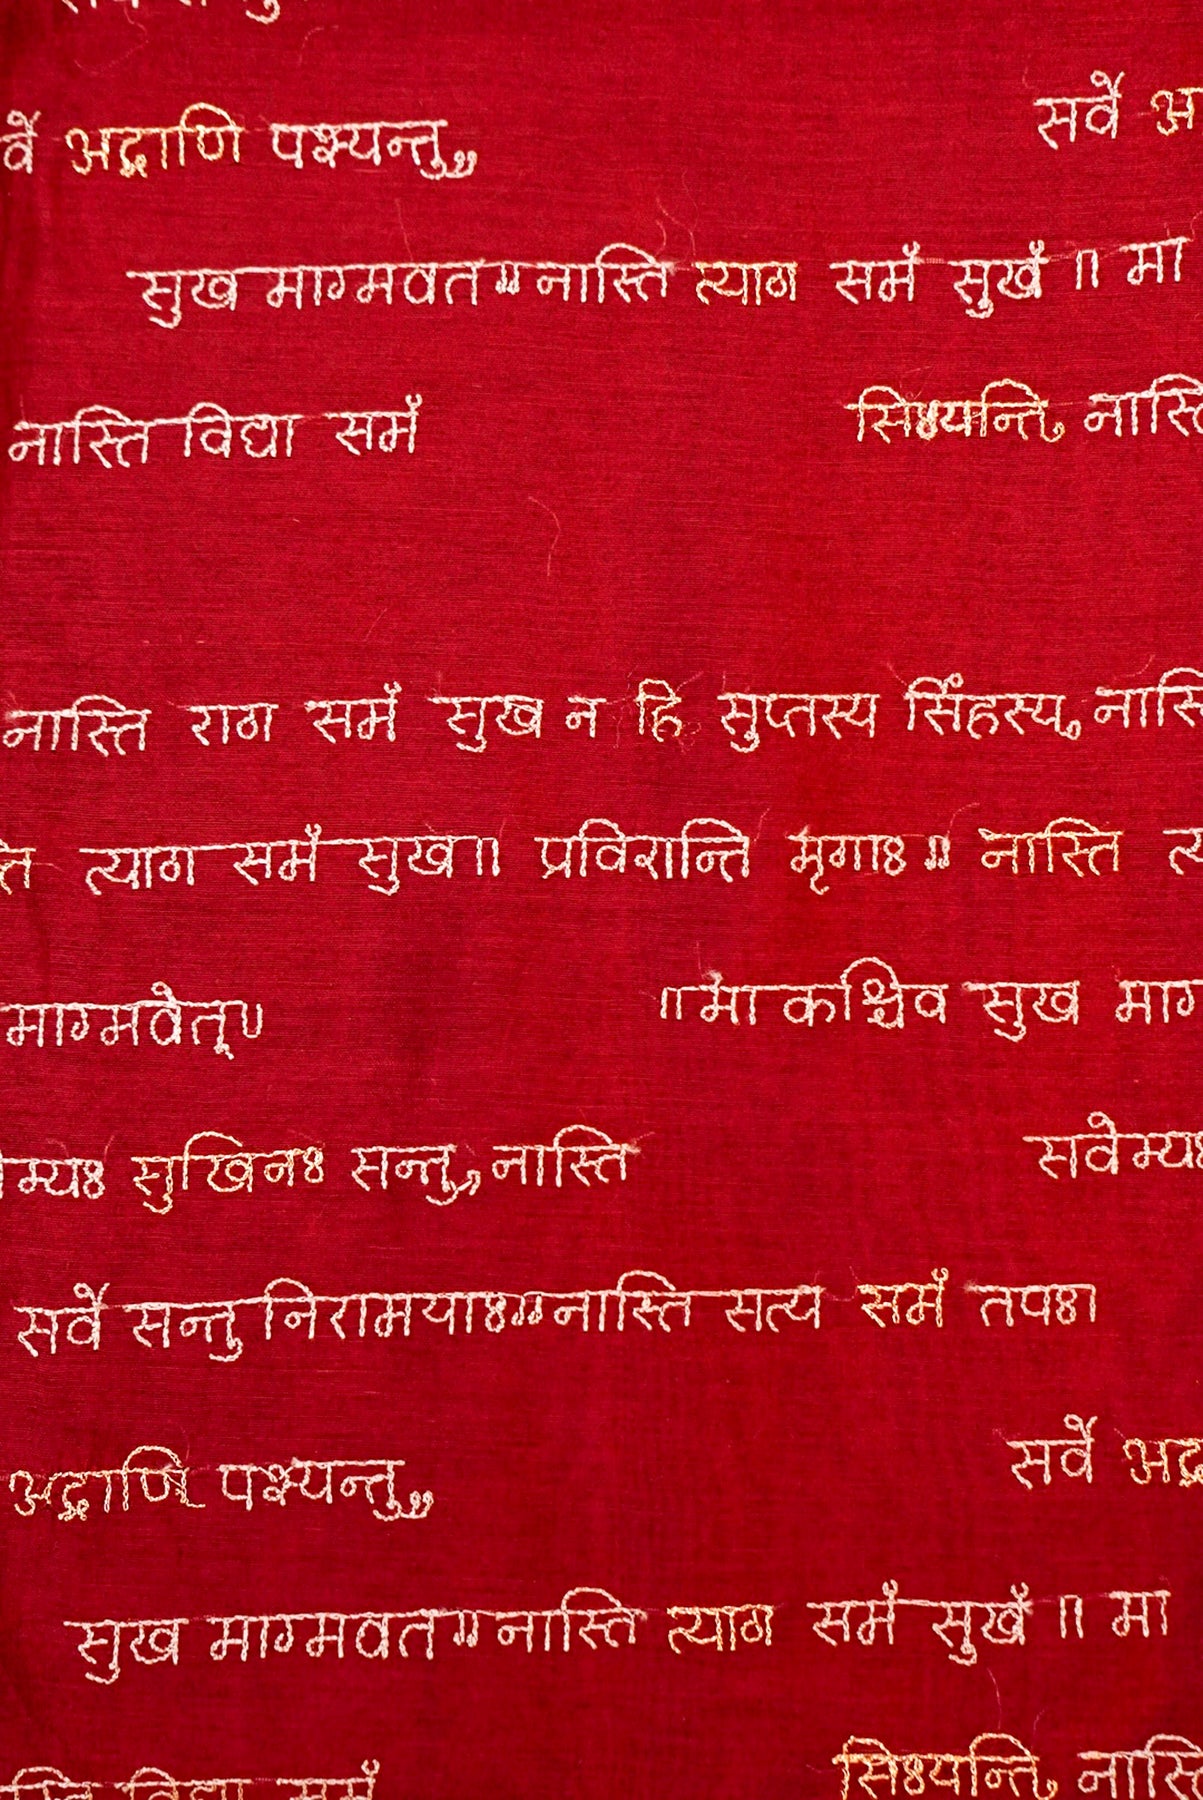 वै अद्राणि पश्यन्तु,, सर्वे अ
सुख माग्मवत ॥ नास्ति त्याग समं सुखं ॥ मा
नास्ति विद्या समं सिध्यन्ति, नास्ति
नास्ति राग समं सुख न हि सुप्तस्य सिंहस्य, नास्ति
त्याग समं सुख ॥ प्रविशन्ति मृगाः ॥ नास्ति
माग्मवेत् ॥ ॥ मा कश्चिव सुख माग
सुखिनः सन्तु, नास्ति सवेम्यः
सर्वे सन्तु निरामयाः ॥ नास्ति सत्य समं तपः।
अद्राणि पश्यन्तु,, सर्वे अद्र
सुख माग्मवत ॥ नास्ति त्याग समं सुखं ॥ मा
विद्या समं सिध्यन्ति, नास्ति